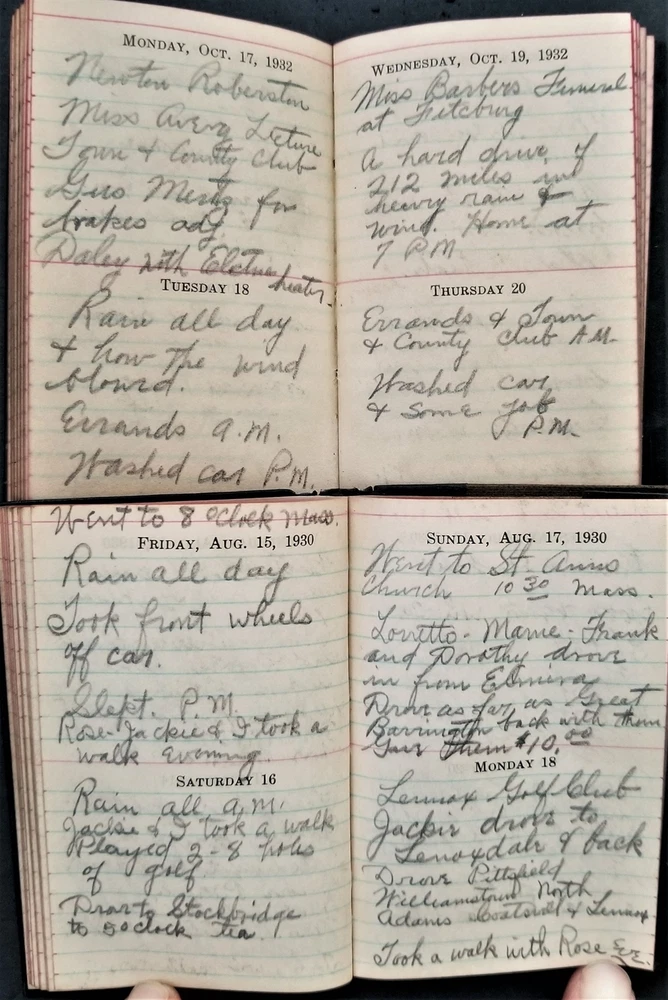 MONDAY, OCT. 17, 1932
Newton Roberston
Miss Avery Lecture
Town & County Club
Gus Mertz for
brakes adj.
Daley with Elctric heater.
TUESDAY 18
Rain all day
& how the wind
blowed.
Errands A.M.
Washed car P.M.
WEDNESDAY, OCT. 19, 1932
Miss Barbers Funeral
at Fitcburg
A hard drive of
212 miles in
heavy rain &
wind. Home at
7 P.M
THURSDAY 20
Errands & Town
& County Club A.M.
Washed car
& some job
P.M.
Went to 8 oClock Mass.
FRIDAY, AUG. 15, 1930
Rain all day
Took front wheels
off car.
Slept. P.M.
Rose-Jackie & I took a
walk evening.
SATURDAY 16
Rain all a.m.
Jackie & I took a walk
Played 2-8 holes
of golf.
to Stockbridge
to 5 oclock tea.
SUNDAY, AUG. 17, 1930
Went to St. Anns
Church 10 30 Mass.
Loretto - Mame - Frank
and Dorothy drove
in from Elmira
Drove as far as Great
Barrington back with them
Gave them $10.00
MONDAY 18
Lennox Golf Club
Jackie drove to
Lenoxdale & back
Drove Pittsfield
Williamstown North
Adams & Lennox
Took a walk with Rose Eve.